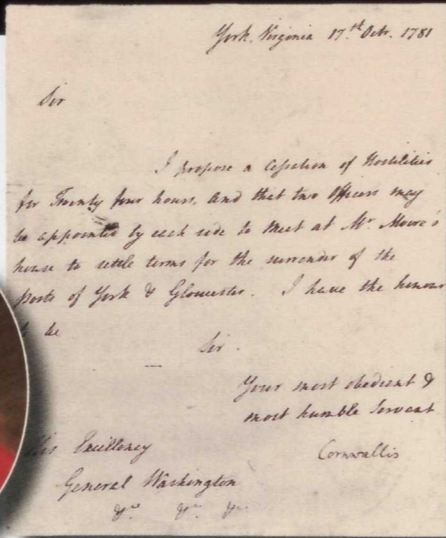 York, Virginia 17th Octr. 1781
Sir
I propose a Cessation of Hostilities
for Twenty four hours, and that two Officers may
be appointed by each side to meet at Mr. Moore's
house to settle terms for the surrender of the
posts of York & Gloucester. I have the honour
to be
Sir.
Your most obedient &
most humble Servant
Cornwallis
His Excellency
General Washington
&c. &c. &c.